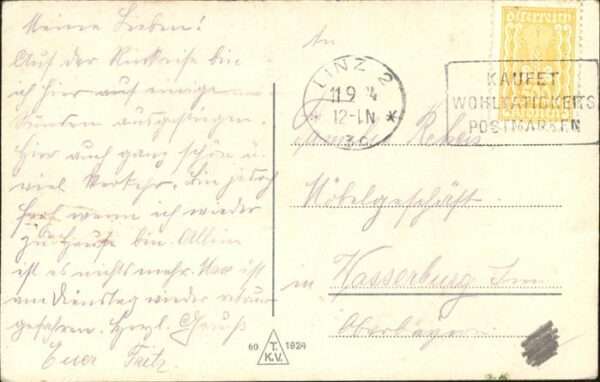 Meine Lieben!
Auf der Rückreise bin
ich hier auf einige
Stunden ausgestiegen.
Hier auch ganz schön u.
viel Verkehr. Bin jedoch
froh wenn ich wieder
zu Hause bin. Allein
ist es nichts mehr. War
am Dienstag wieder
gefahren. Herzl. Gruß
Euer Fritz.
An
Möbelgeschäft
in Wasserburg Inn
Oberbayern
LINZ 2
11.9 24
12-1N *
österreich
KAUFET
WOHLTÄTIGKEITS
POSTMARKEN
60 T.K.V. 1924